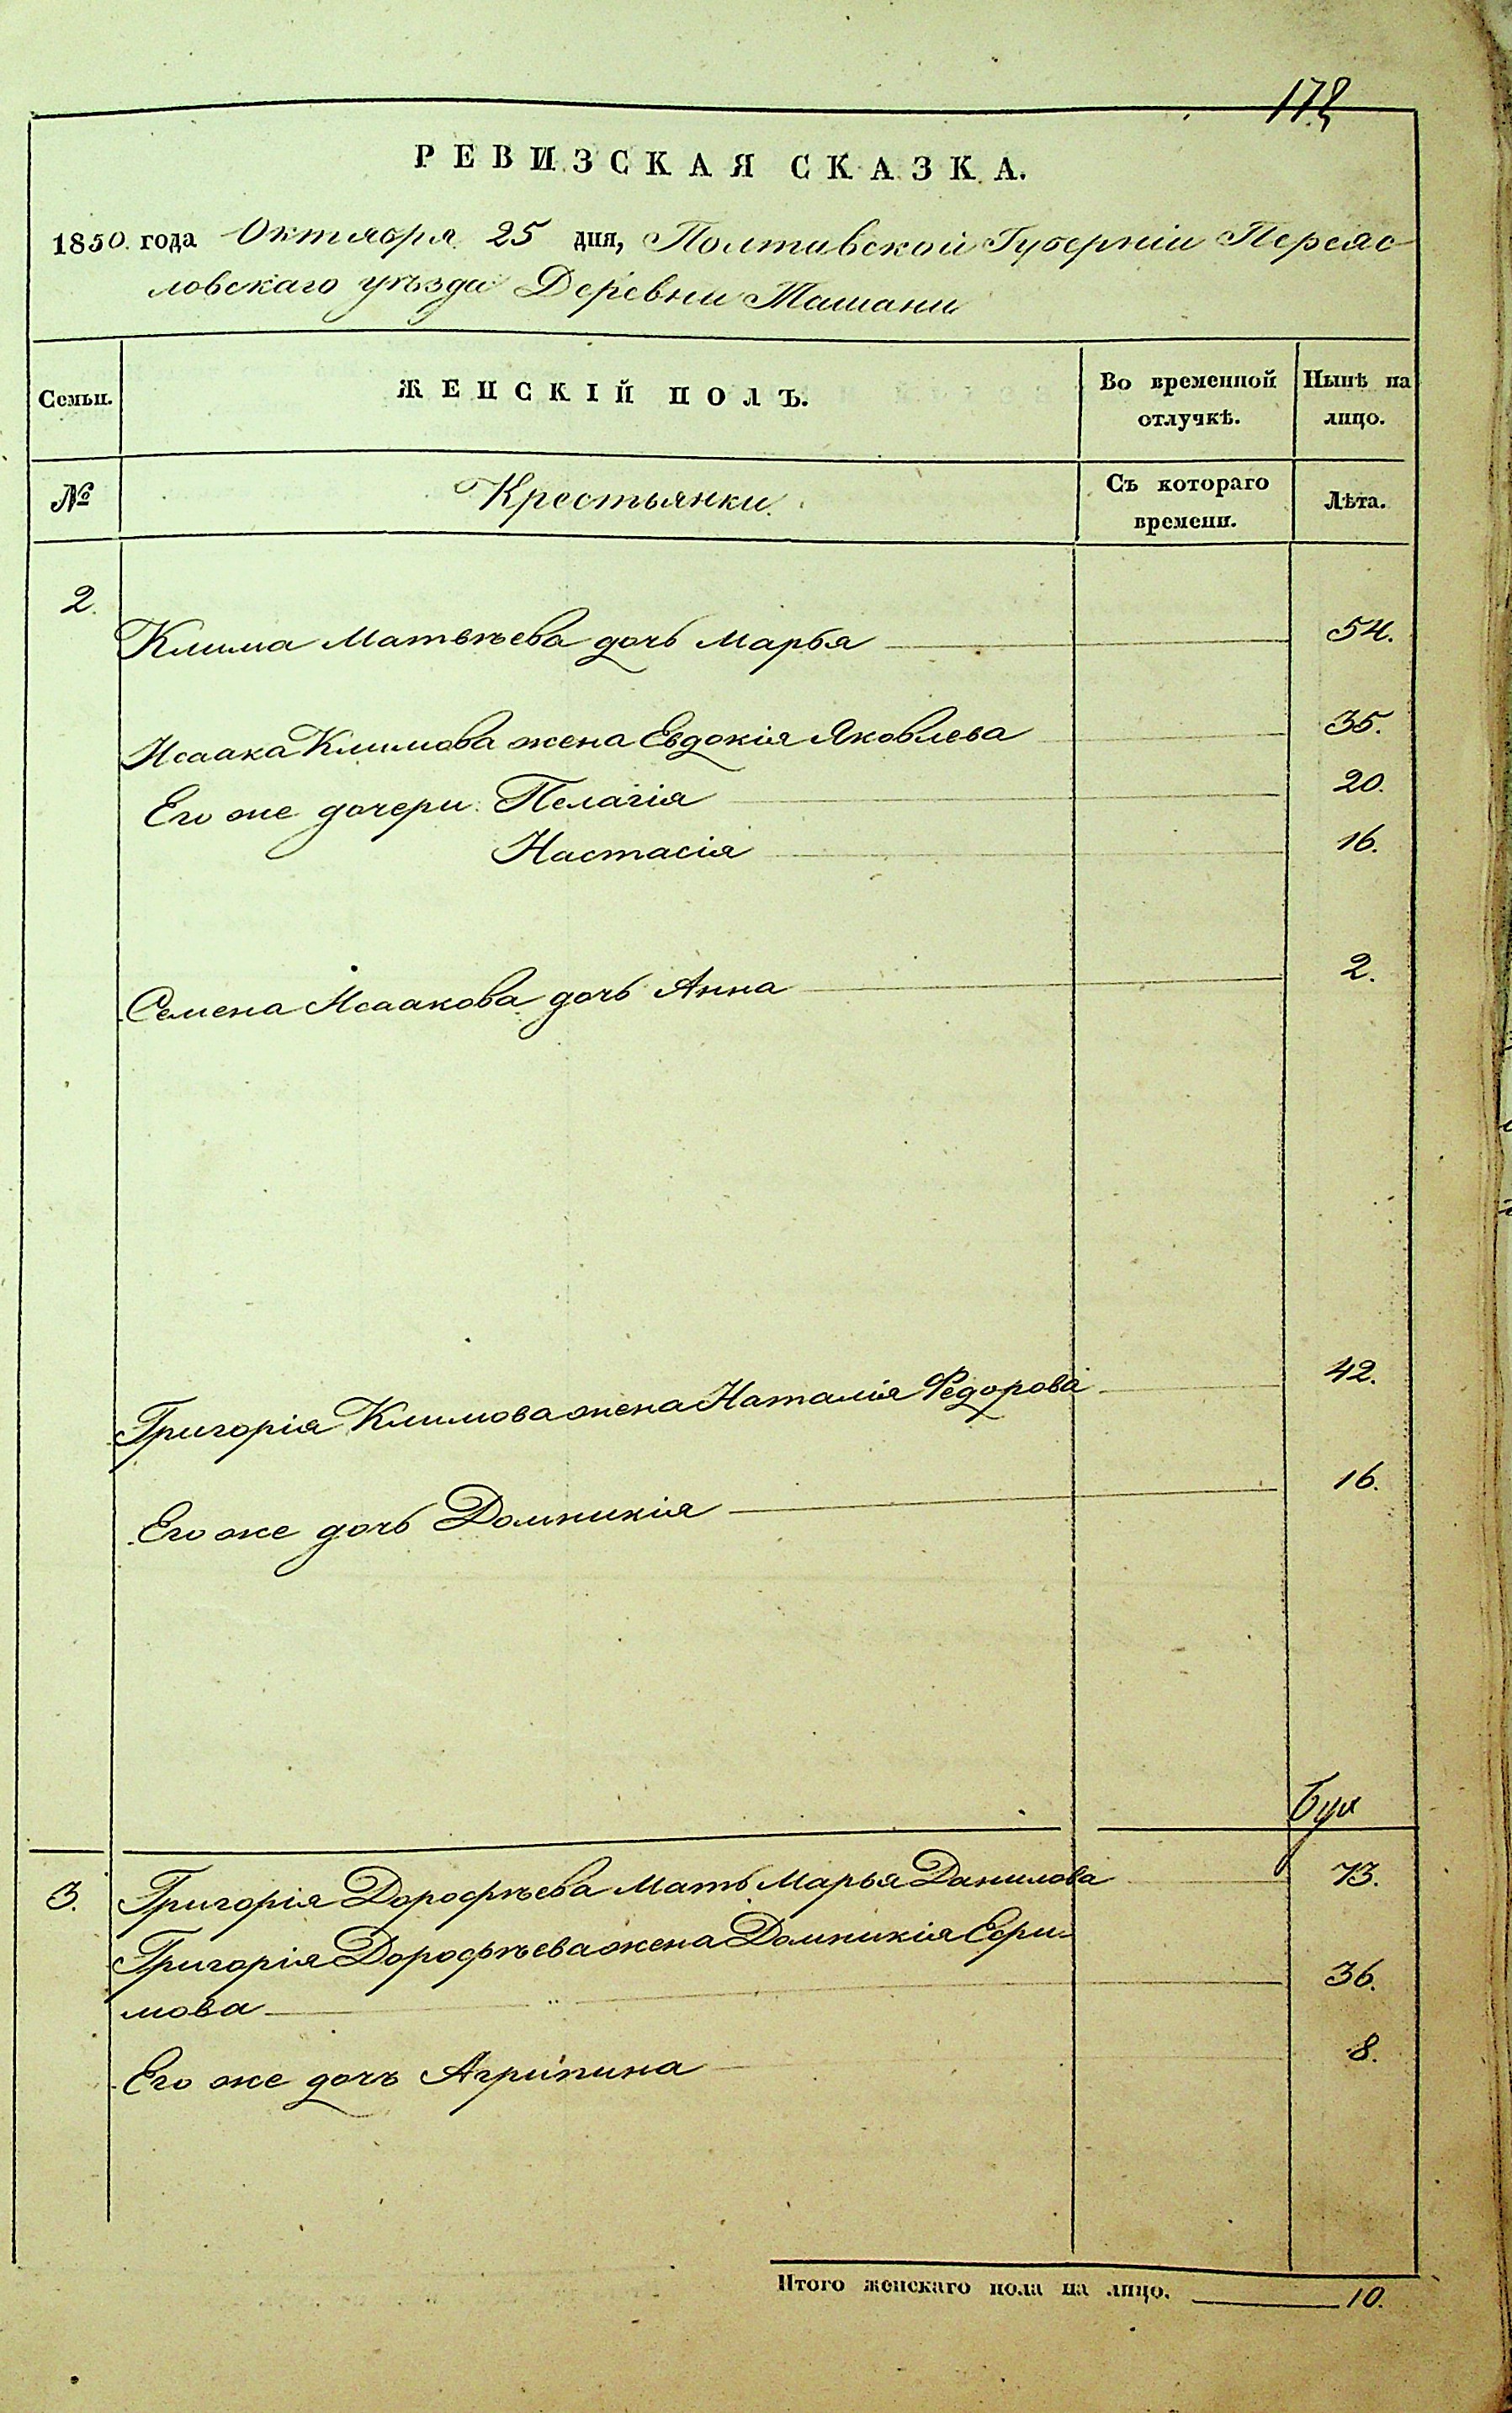 178
РЕВИЗСКАЯ СКАЗКА.
1850. года Октября 25 дня, Полтавской Губерніи Переяс
ловскаго уѣзда Деревни Ташани
Семьи.
ЖЕНСКІЙ ПОЛЪ.
Во временной отлучкѣ.
Нынѣ на лицо.
№
Крестьянки.
Съ котораго времени.
Лѣта.
2.
Клима Матвѣева дочь Марья 54.
Исаака Климова жена Евдокія Яковлева 35.
Его же дочери: Пелагія 20.
Настасія 16.
Семена Исаакова дочь Анна 2.
Григорія Климова жена Наталія Федорова 42.
Его же дочь Домникія 16.
3. Григорія Дорофѣева Мать Марья Данилова 73.
Григорія Дорофѣева жена Домникія Ефи-
мова 36.
Его же дочь Агрипина 8.
Итого женскаго пола на лицо. 10.